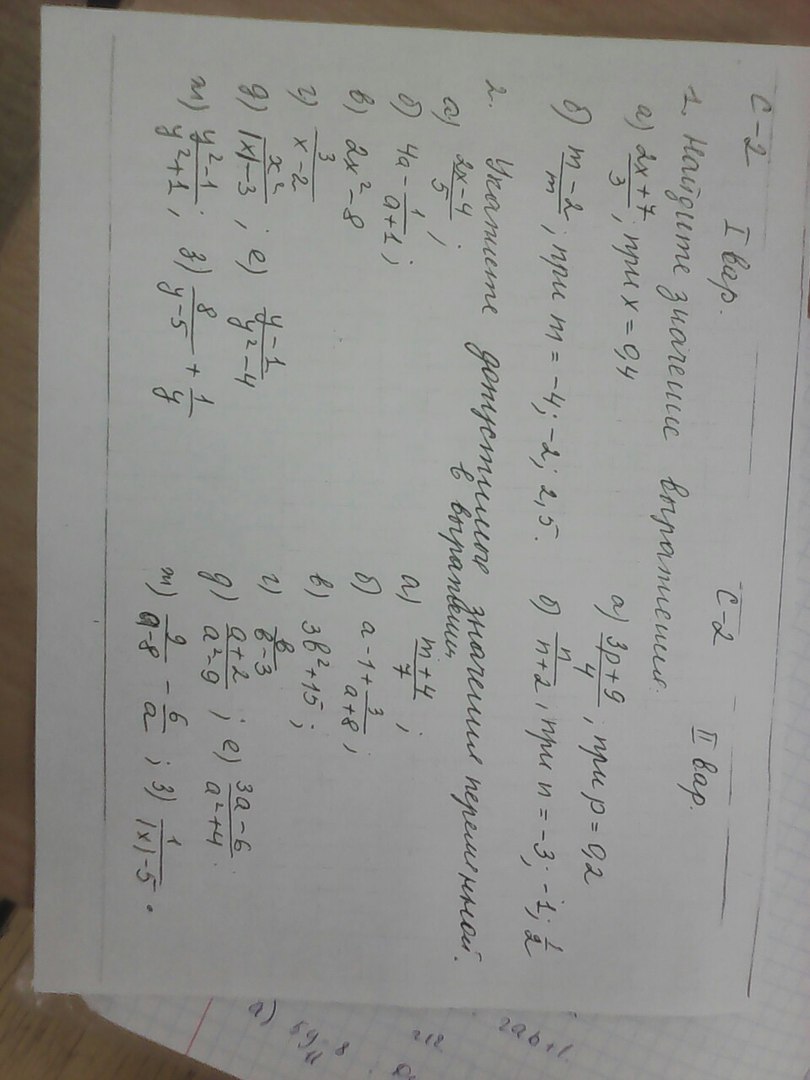 С-2 I вар.
С-2 II вар.
1. Найдите значение выражения.
а) 2x+7/3, при x=0,4
а) 3p+9/4; при p=0,2
б) m-2/m; при m=-4; -2; 2,5.
б) n/n+2, при n=-3; -1; 1/2
2. Укажите допустимые значения переменной
в выражении.
а) 2x-4/5;
б) 4a-1/a+1;
в) 2x²-8
г) 3/x-2
д) x²/|x|-3; е) y-1/y²-4
ж) y²-1/y²+1; з) 8/y-5 + 1/y
а) m+4/7;
б) a-1+3/a+8;
в) 3b²+15;
г) b/b-3
д) a+2/a²-9; е) 3a-6/a²+4.
ж) 9/a-8 - 6/a; з) 1/|x|-5.
а)
2ab+1